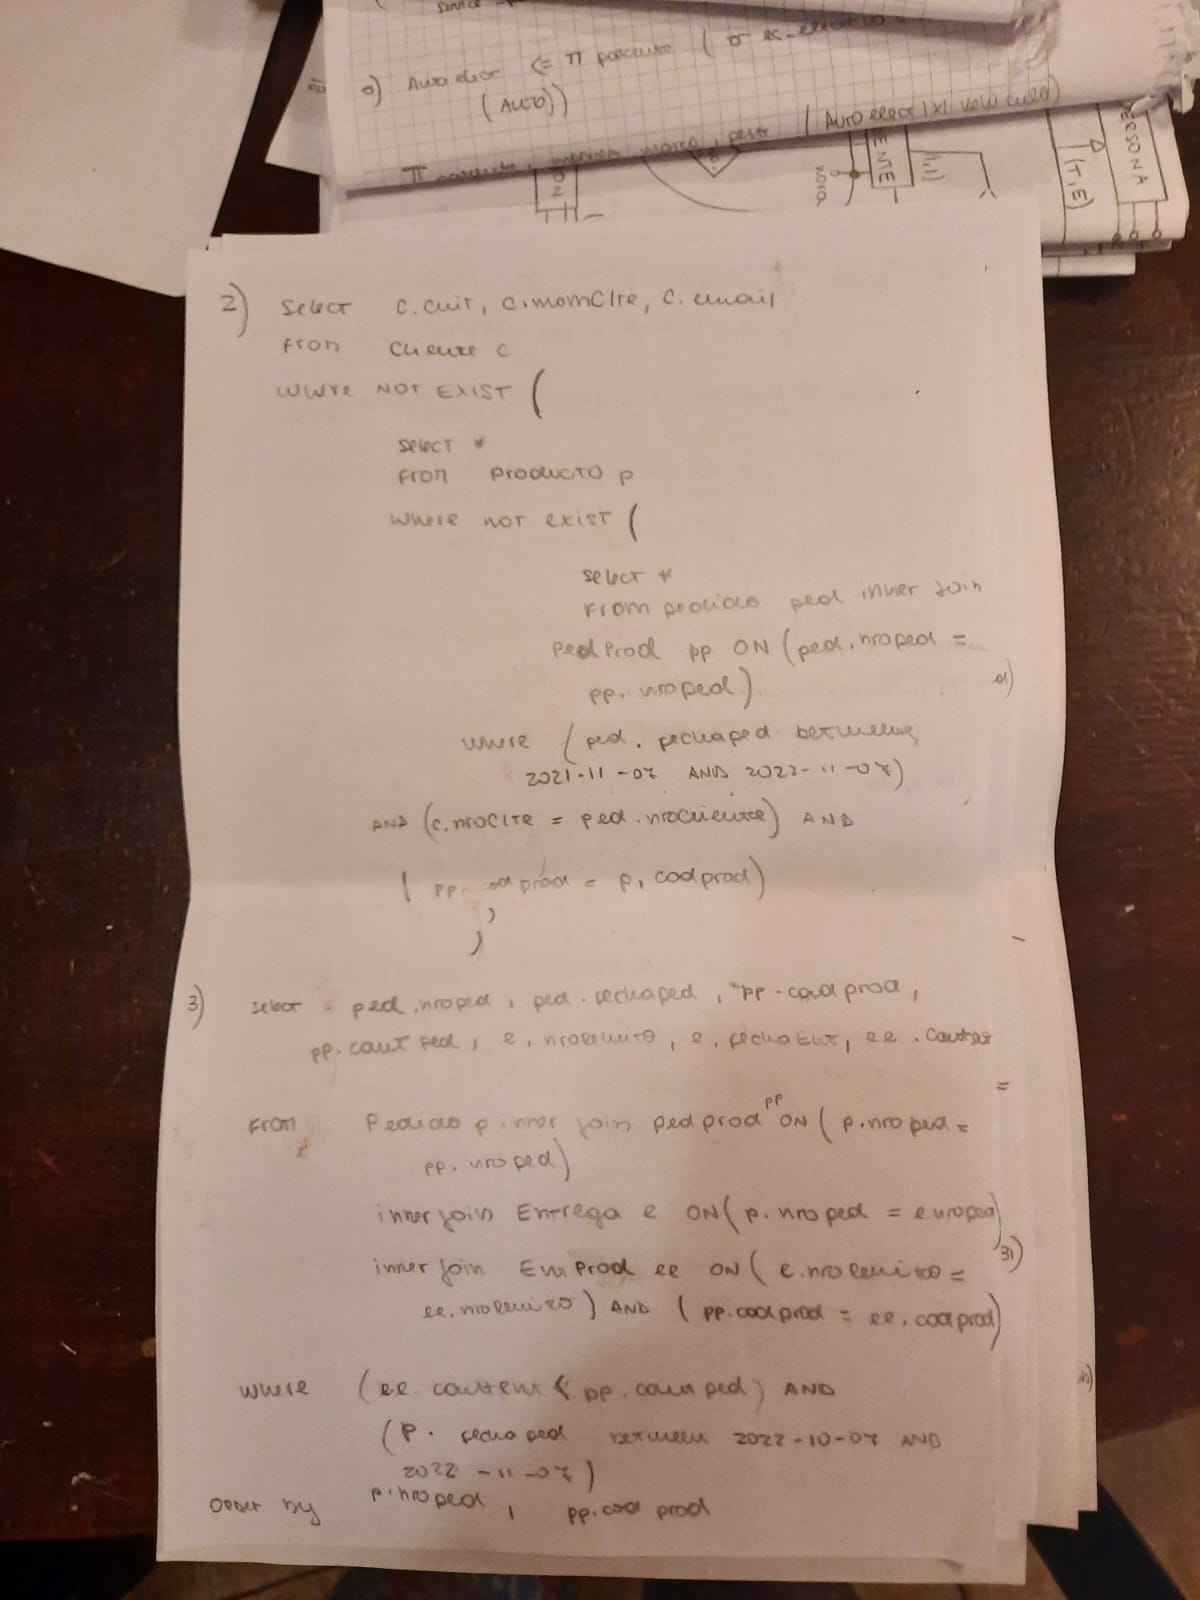 o) Auto elect <= π patente ( σ es_electrico
(AUTO))
π patente, marca, peso (Auto elect |x| vehiculo)
ENTE
(1,1)
(T,E)
PERSONA
2) select c.cuit, c.nomClte, c.email
from cliente c
where NOT EXIST (
select *
from producto p
where not exist (
select *
from pedido ped inner join
pedProd pp ON (ped.nroped =
pp.nroped)
where (ped.fechaped between
2021-11-07 AND 2022-11-07)
AND (c.nroClte = ped.nroCliente) AND
( pp.codprod = p.codprod)
)
)
3) select ped.nroped, ped.fechaped, pp.codprod,
pp.cantped, e.nroRemito, e.fechaEnt, ee.
From Pedido p inner join pedprod pp ON ( p.nroped =
pp.nroped)
inner join Entrega e ON( p.nroped = e.nroped)
inner join EntProd ee ON ( e.nroRemito =
ee.nroRemito) AND ( pp.codprod = ee.codprod)
where (ee.cantent < pp.cantped) AND
(P.fechaped between 2022-10-07 AND
2022-11-07)
order by p.nroped, pp.codprod